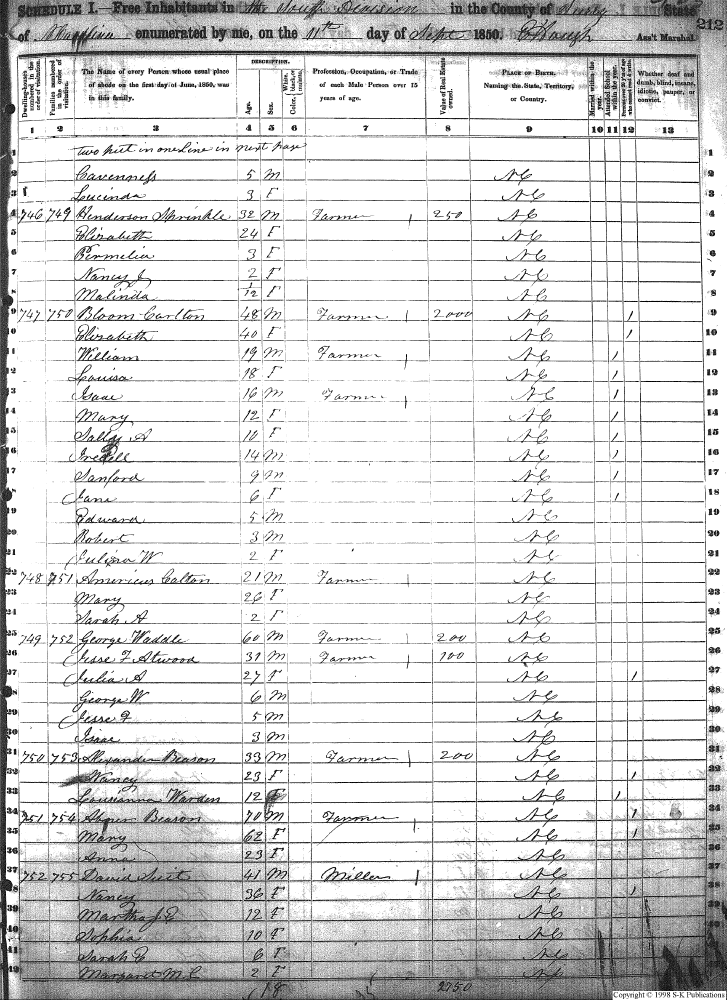 SCHEDULE I.—Free Inhabitants in the South Division in the County of Surry State
of N Carolina enumerated by me, on the 11th day of Sept 1850. Ass't Marshal.
212
Dwelling-houses numbered in the order of visitation.
Families numbered in the order of visitation.
The Name of every Person whose usual place of abode on the first day of June, 1850, was in this family.
DESCRIPTION.
Age.
Sex.
White, black, or mulatto. Color,
Profession, Occupation, or Trade of each Male Person over 15 years of age.
Value of Real Estate owned.
PLACE OF BIRTH. Naming the State, Territory, or Country.
Married within the year.
Attended School within the year.
Whether deaf and dumb, blind, insane, idiotic, pauper, or convict.
1 2 3 4 5 6 7 8 9 10 11 12 13
1 two put in one line in next page 1
2 Cavenness 5 M NC 2
3 Lucinda 3 F NC 3
4 746 749 Henderson Sprinkle 32 M Farmer 250 NC 4
5 Elizabeth 24 F NC 5
6 Permelia 3 F NC 6
7 Nancy J 2 F NC 7
8 Malinda 1/12 F NC 8
9 747 750 Bloom Carlton 48 M Farmer 2000 NC / 9
10 Elizabeth 40 F NC / 10
11 William 19 M Farmer NC / 11
12 Louisa 18 F NC / 12
13 Isaac 16 M Farmer NC / 13
14 Mary 12 F NC / 14
15 Sally A 10 F NC / 15
16 Iredell 14 M NC / 16
17 Sanford 9 M NC / 17
18 Jane 6 F NC / 18
19 Edward 5 M NC 19
20 Robert 3 M NC 20
21 W 2 F NC 21
22 748 751 Americus Calton 21 M Farmer NC 22
23 Mary 26 F NC 23
24 Sarah A 2 F NC 24
25 749 752 George Waddle 60 M Farmer 200 NC 25
26 Jesse F Atwood 31 M Farmer 100 NC 26
27 Julia A 27 F NC / 27
28 George W 6 M NC 28
29 Jesse F 5 M NC 29
30 Isaac 3 M NC 30
31 750 753 Alexander Beason 33 M Farmer 200 NC 31
32 Nancy 23 F NC / 32
33 Warden 12 F NC / 33
34 751 754 Abner Beason 70 M Farmer NC / 34
35 Mary 62 F NC / 35
36 Anna 23 F NC 36
37 752 755 David 41 M Miller NC 37
38 Nancy 36 F NC / 38
39 Martha J E 12 F NC 39
40 Sophia 10 F NC 40
41 Sarah E 6 F NC 41
42 Margaret M C 2 F NC
2750
Copyright © 1998 S-K Publications